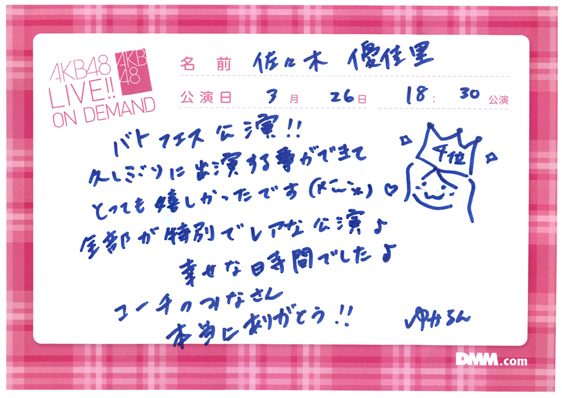 AKB48
LIVE!!
ON DEMAND
AKB
48
名前 佐々木 優佳里
公演日 3月 26日 18:30公演
バトフェス公演!!
久しぶりに出演する事ができて
とっても嬉しかったです
全部が特別でレアな公演♪
幸せな日時間でした♪
コーチのみなさん
本当にありがとう!!
4位
ゆかるん
DMM.com